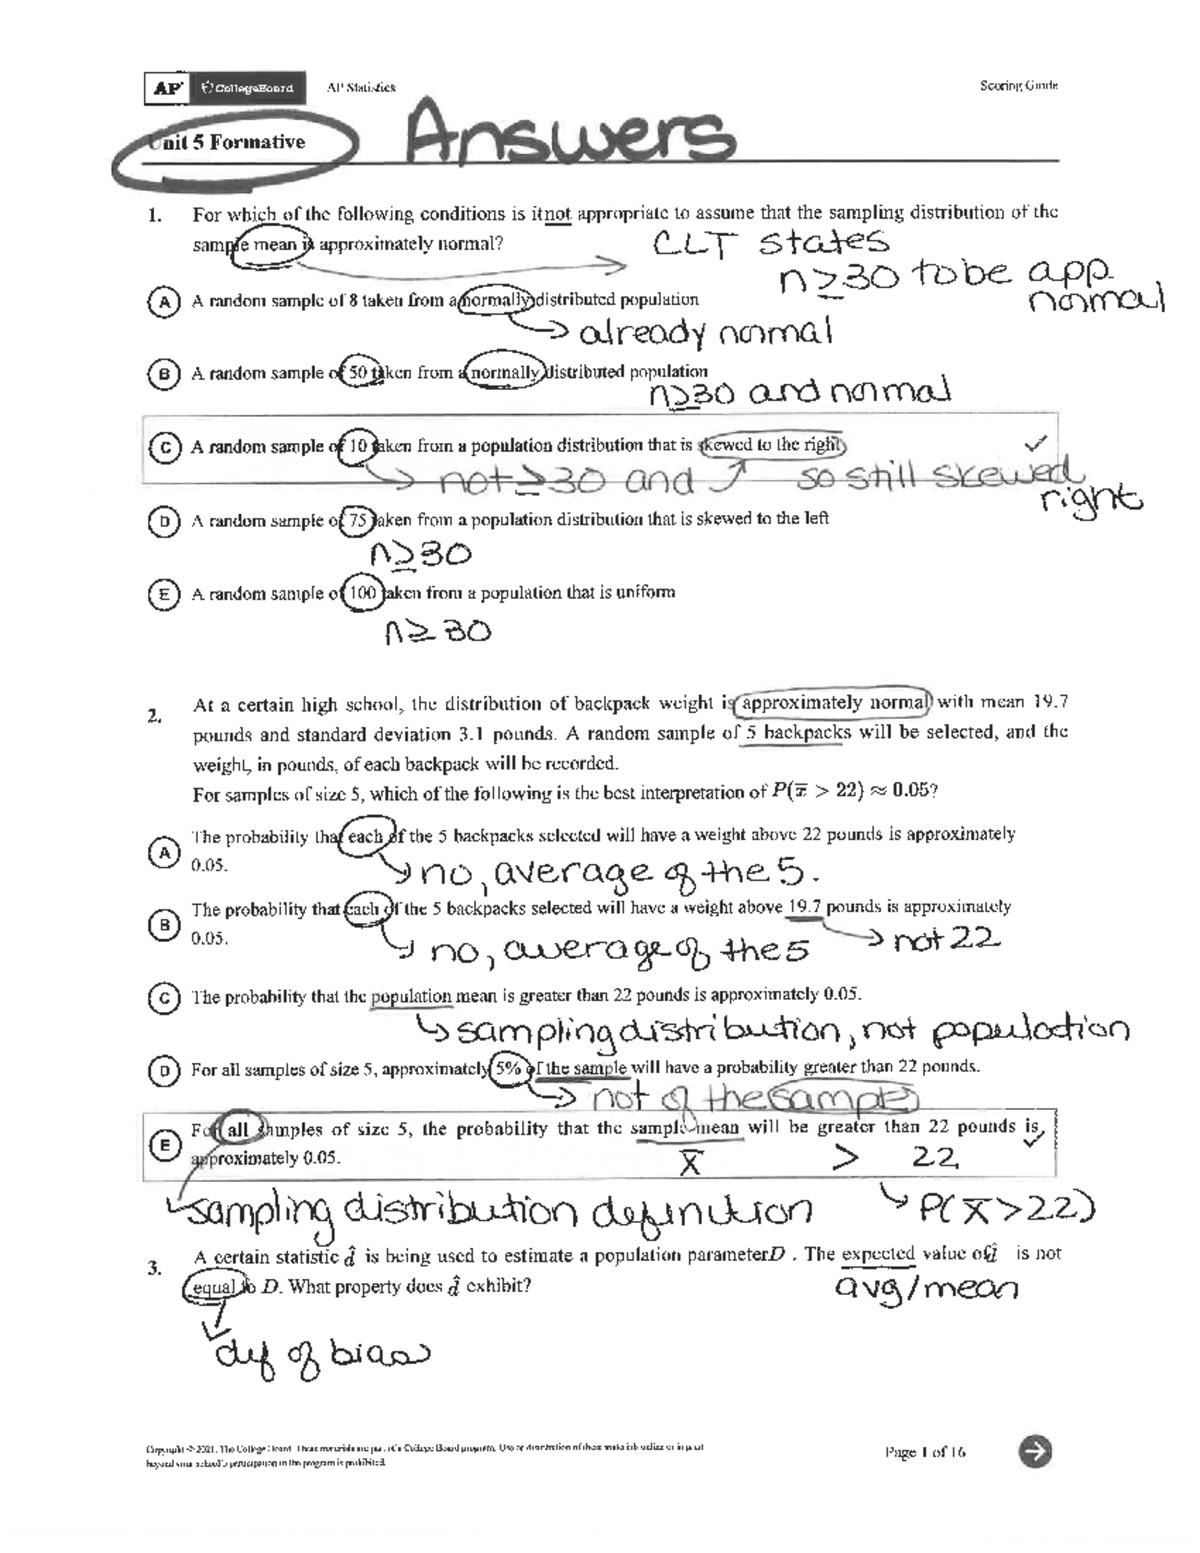 AP CollegeBoard AP Statistics Scoring Guide
Unit 5 Formative Answers
1. For which of the following conditions is it not appropriate to assume that the sampling distribution of the
sample mean is approximately normal?
CLT states
n≥30 to be app.
normal
A A random sample of 8 taken from a normally distributed population
already normal
B A random sample of 50 taken from a normally distributed population
n≥30 and normal
C A random sample of 10 taken from a population distribution that is skewed to the right
not ≥30 and so still skewed
right
D A random sample of 75 taken from a population distribution that is skewed to the left
n≥30
E A random sample of 100 taken from a population that is uniform
n≥30
2. At a certain high school, the distribution of backpack weight is approximately normal with mean 19.7
pounds and standard deviation 3.1 pounds. A random sample of 5 backpacks will be selected, and the
weight, in pounds, of each backpack will be recorded.
For samples of size 5, which of the following is the best interpretation of P(x̅ > 22) ≈ 0.05?
A The probability that each of the 5 backpacks selected will have a weight above 22 pounds is approximately
0.05.
no, average of the 5.
B The probability that each of the 5 backpacks selected will have a weight above 19.7 pounds is approximately
0.05.
no, average of the 5 → not 22
C The probability that the population mean is greater than 22 pounds is approximately 0.05.
sampling distribution, not population
D For all samples of size 5, approximately 5% of the sample will have a probability greater than 22 pounds.
not of the sample
E For all samples of size 5, the probability that the sample mean will be greater than 22 pounds is
approximately 0.05.
x̅ > 22
sampling distribution definition P(x̅ >22)
3. A certain statistic d̂ is being used to estimate a population parameter D . The expected value of d̂ is not
equal to D. What property does d̂ exhibit?
avg/mean
def of bias
Copyright © 2021. The College Board. These materials are part of a College Board program. Use or distribution of these materials online or in print
beyond your school's participation in the program is prohibited.
Page 1 of 16